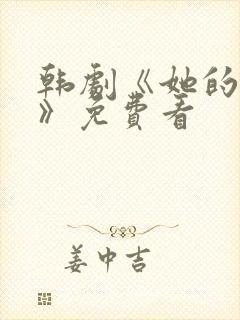 韩剧《她的
》免费看
姜中吉